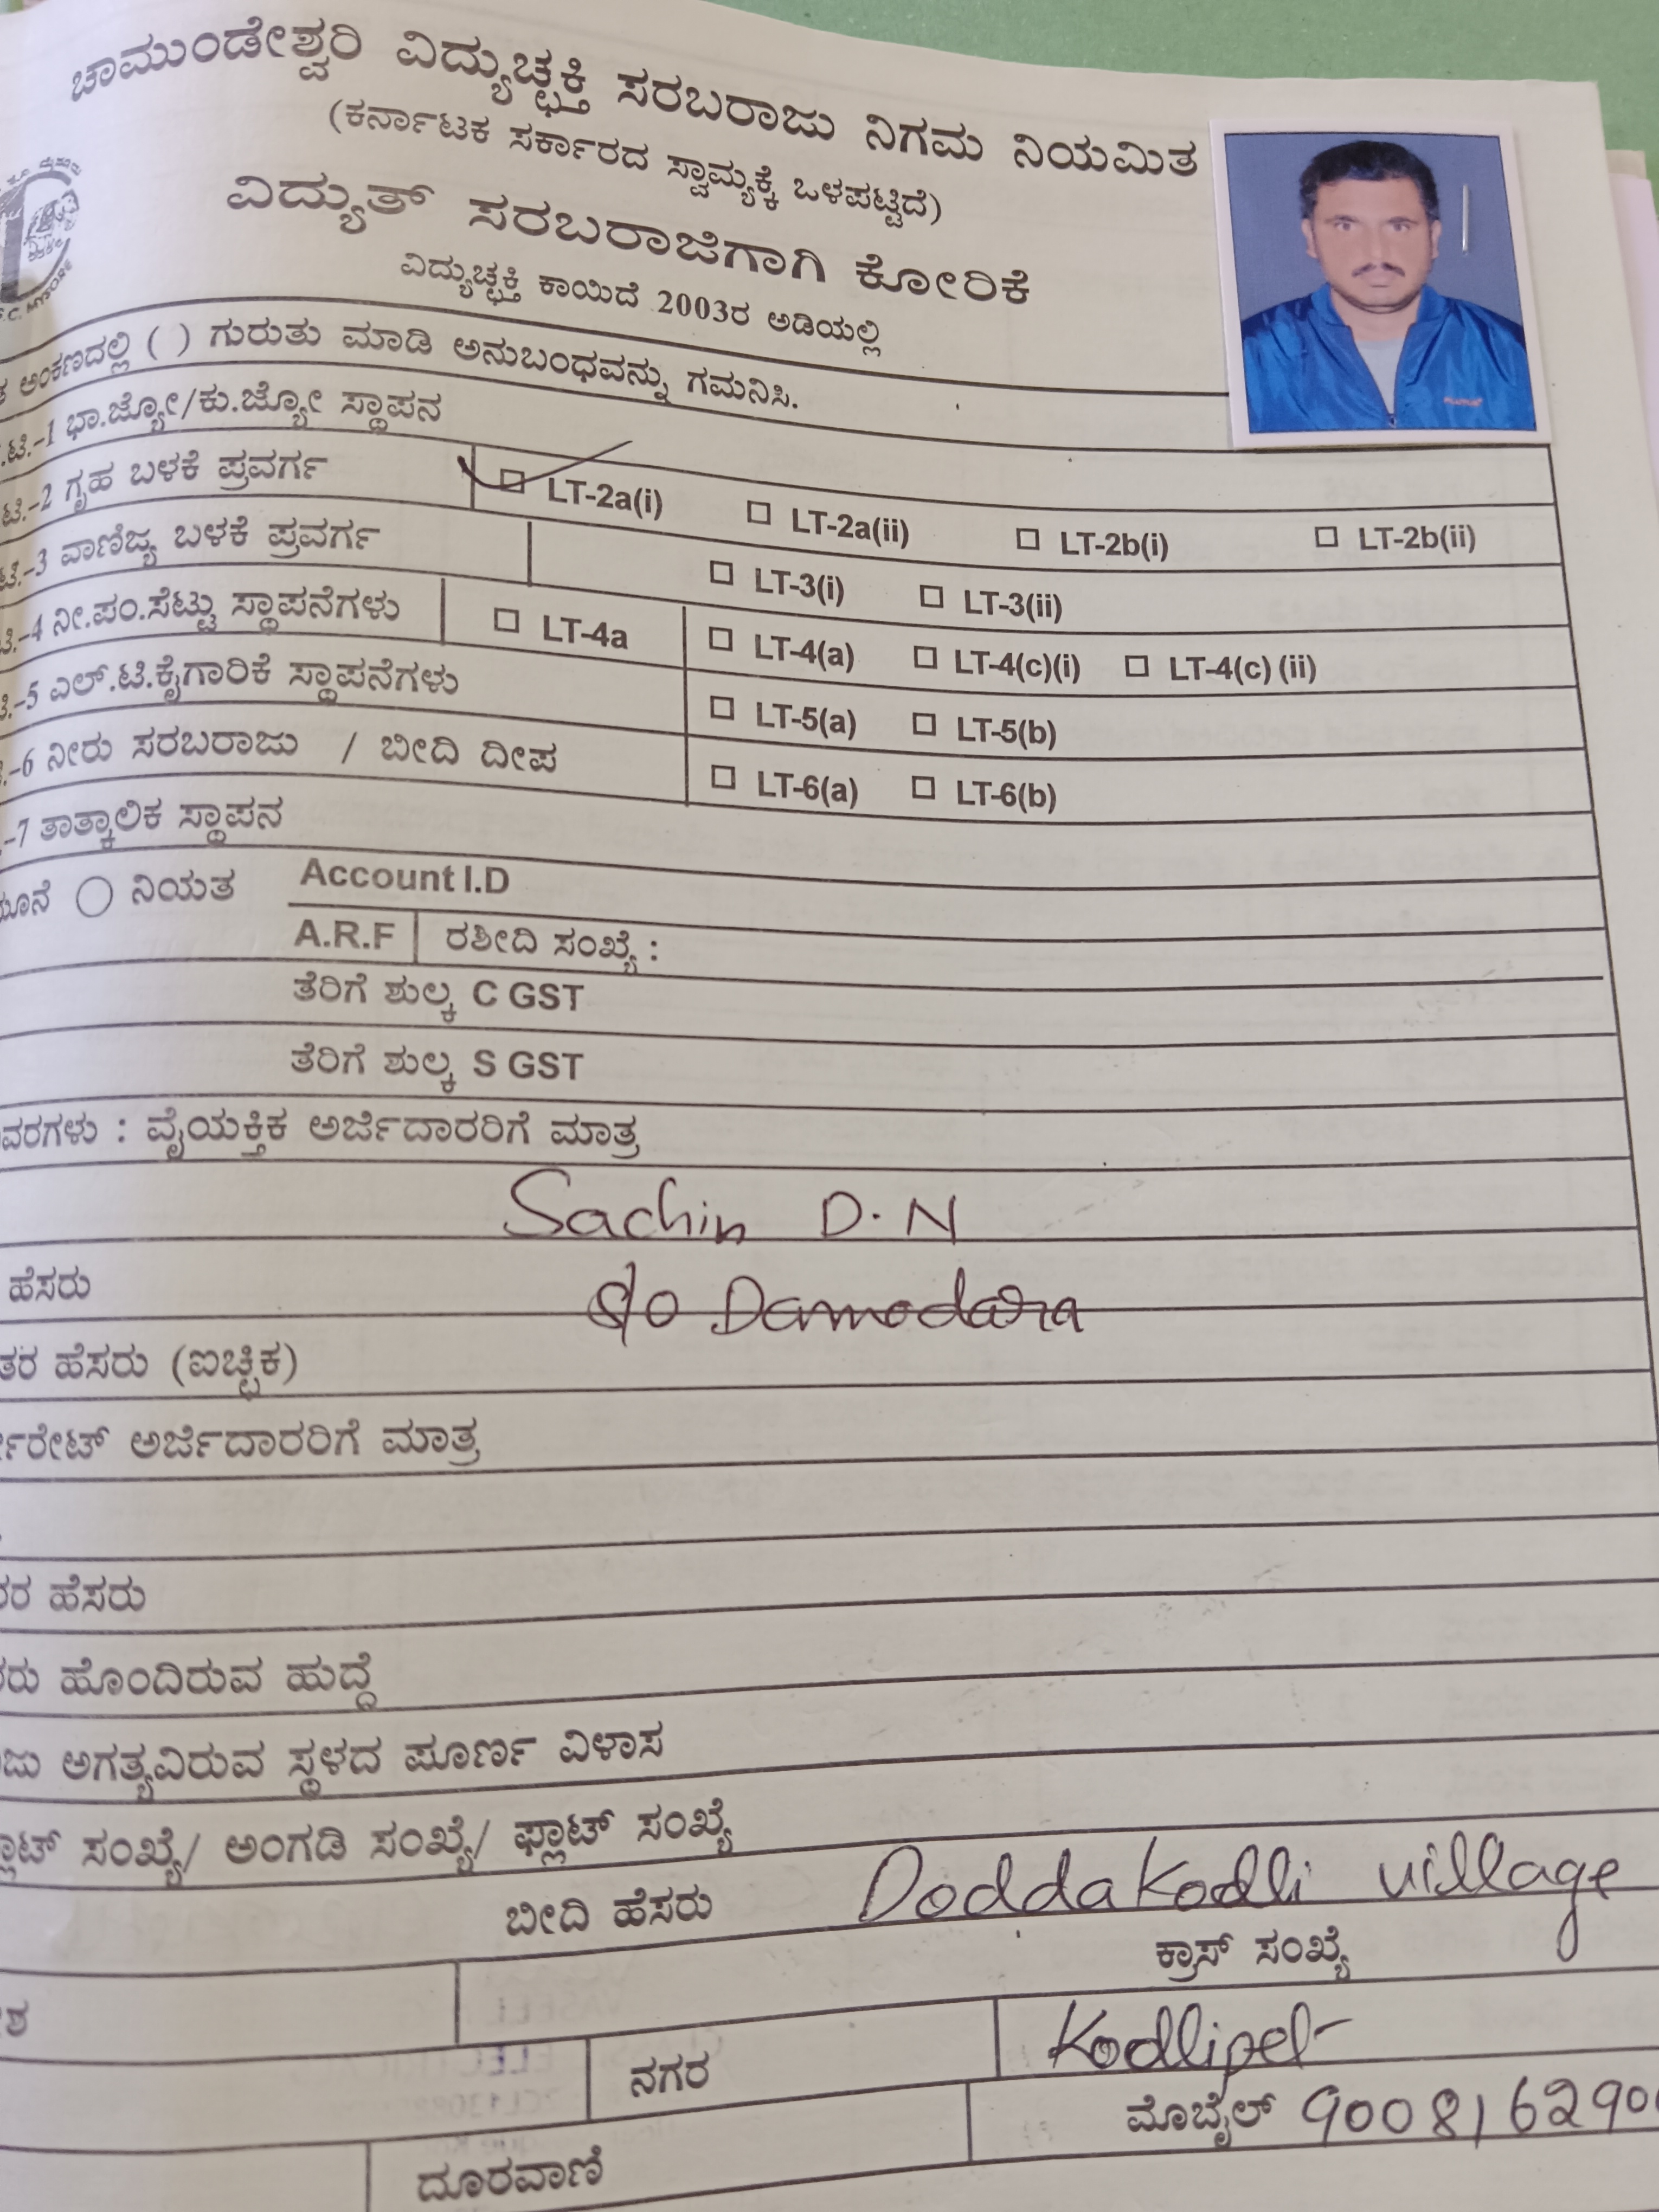 ಚಾಮುಂಡೇಶ್ವರಿ ವಿದ್ಯುಚ್ಛಕ್ತಿ ಸರಬರಾಜು ನಿಗಮ ನಿಯಮಿತ
(ಕರ್ನಾಟಕ ಸರ್ಕಾರದ ಸ್ವಾಮ್ಯಕ್ಕೆ ಒಳಪಟ್ಟಿದೆ)
ವಿದ್ಯುತ್ ಸರಬರಾಜಿಗಾಗಿ ಕೋರಿಕೆ
ವಿದ್ಯುಚ್ಛಕ್ತಿ ಕಾಯಿದೆ 2003ರ ಅಡಿಯಲ್ಲಿ
ಅಂಕಣದಲ್ಲಿ ( ) ಗುರುತು ಮಾಡಿ ಅನುಬಂಧವನ್ನು ಗಮನಿಸಿ.
.ಟಿ.-1 ಭಾ.ಜ್ಯೋ/ಕು.ಜ್ಯೋ ಸ್ಥಾಪನ
ಟಿ.-2 ಗೃಹ ಬಳಕೆ ಪ್ರವರ್ಗ LT-2a(i) LT-2a(ii) LT-2b(i) LT-2b(ii)
ಟಿ.-3 ವಾಣಿಜ್ಯ ಬಳಕೆ ಪ್ರವರ್ಗ LT-3(i) LT-3(ii)
-4 ನೀ.ಪಂ.ಸೆಟ್ಟು ಸ್ಥಾಪನೆಗಳು LT-4a LT-4(a) LT-4(c)(i) LT-4(c) (ii)
-5 ಎಲ್.ಟಿ.ಕೈಗಾರಿಕೆ ಸ್ಥಾಪನೆಗಳು LT-5(a) LT-5(b)
-6 ನೀರು ಸರಬರಾಜು / ಬೀದಿ ದೀಪ LT-6(a) LT-6(b)
-7 ತಾತ್ಕಾಲಿಕ ಸ್ಥಾಪನ
ನಿಯತ Account I.D
A.R.F ರಶೀದಿ ಸಂಖ್ಯೆ :
ತೆರಿಗೆ ಶುಲ್ಕ C GST
ತೆರಿಗೆ ಶುಲ್ಕ S GST
ವರಗಳು : ವೈಯಕ್ತಿಕ ಅರ್ಜಿದಾರರಿಗೆ ಮಾತ್ರ
Sachin D.N
ಹೆಸರು S/o Damodara
ತರ ಹೆಸರು (ಐಚ್ಛಿಕ)
ರೇಟ್ ಅರ್ಜಿದಾರರಿಗೆ ಮಾತ್ರ
ರ ಹೆಸರು
ರು ಹೊಂದಿರುವ ಹುದ್ದೆ
ಜು ಅಗತ್ಯವಿರುವ ಸ್ಥಳದ ಪೂರ್ಣ ವಿಳಾಸ
ಲಾಟ್ ಸಂಖ್ಯೆ/ ಅಂಗಡಿ ಸಂಖ್ಯೆ/ ಫ್ಲಾಟ್ ಸಂಖ್ಯೆ
ಬೀದಿ ಹೆಸರು Doddakodli village
ಕ್ರಾಸ್ ಸಂಖ್ಯೆ
ನಗರ Kodlipet
ದೂರವಾಣಿ ಮೊಬೈಲ್ 900816290